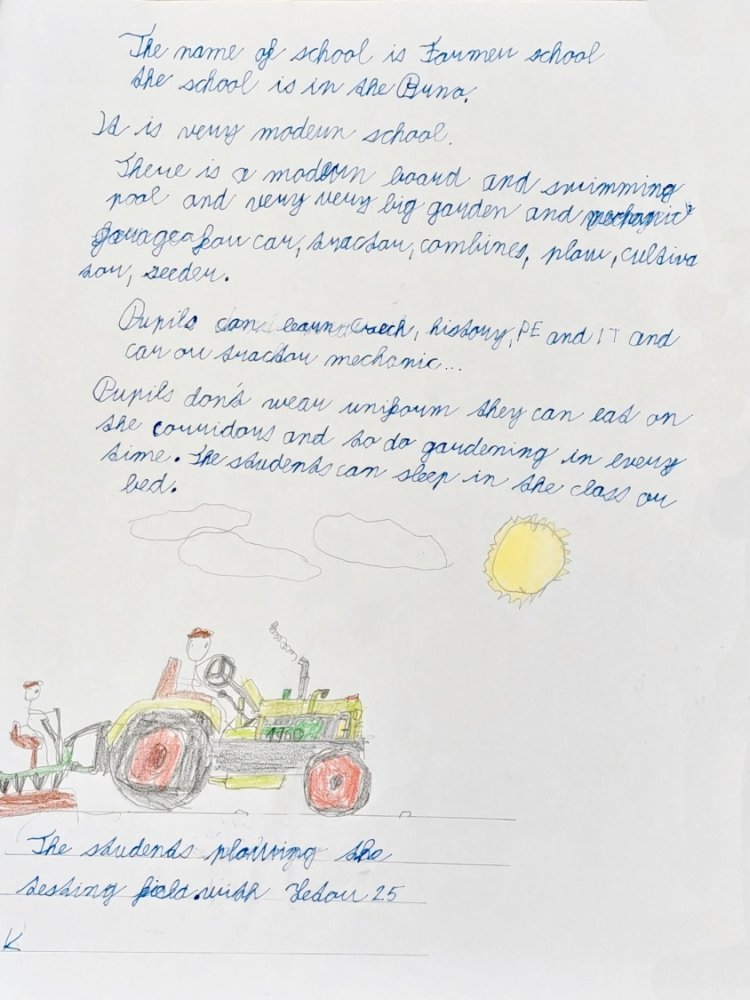 The name of school is Farmer school
the school is in the Brno.
It is very modern school.
There is a modern board and swimming
pool and very very big garden and mechanic
garage for car, tractor, combines, plow, cultiva
tor, seeder.
Pupils can learn Czech, history, PE and IT and
car or tractor mechanic...
Pupils don't wear uniform they can eat on
the corridors and to do gardening in every
time. The students can sleep in the class or
bed.
The students plowing the
testing field with Zetor 25
K